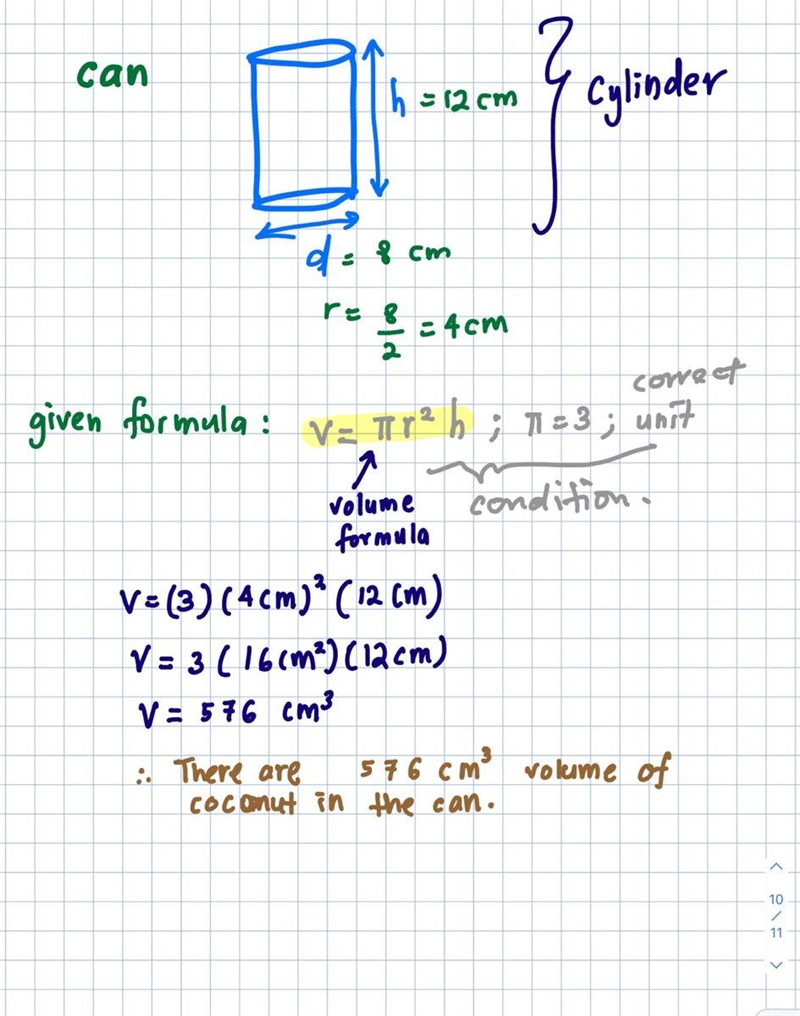 can
h = 12 cm
cylinder
d = 8 cm
r = 8/2 = 4 cm
correct
given formula : V = πr² h ; π = 3 ; unit
condition.
volume
formula
V = (3) (4 cm)² (12 cm)
V = 3 (16 cm²) (12 cm)
V = 576 cm³
∴ There are 576 cm³ volume of
coconut in the can.
10
/
11